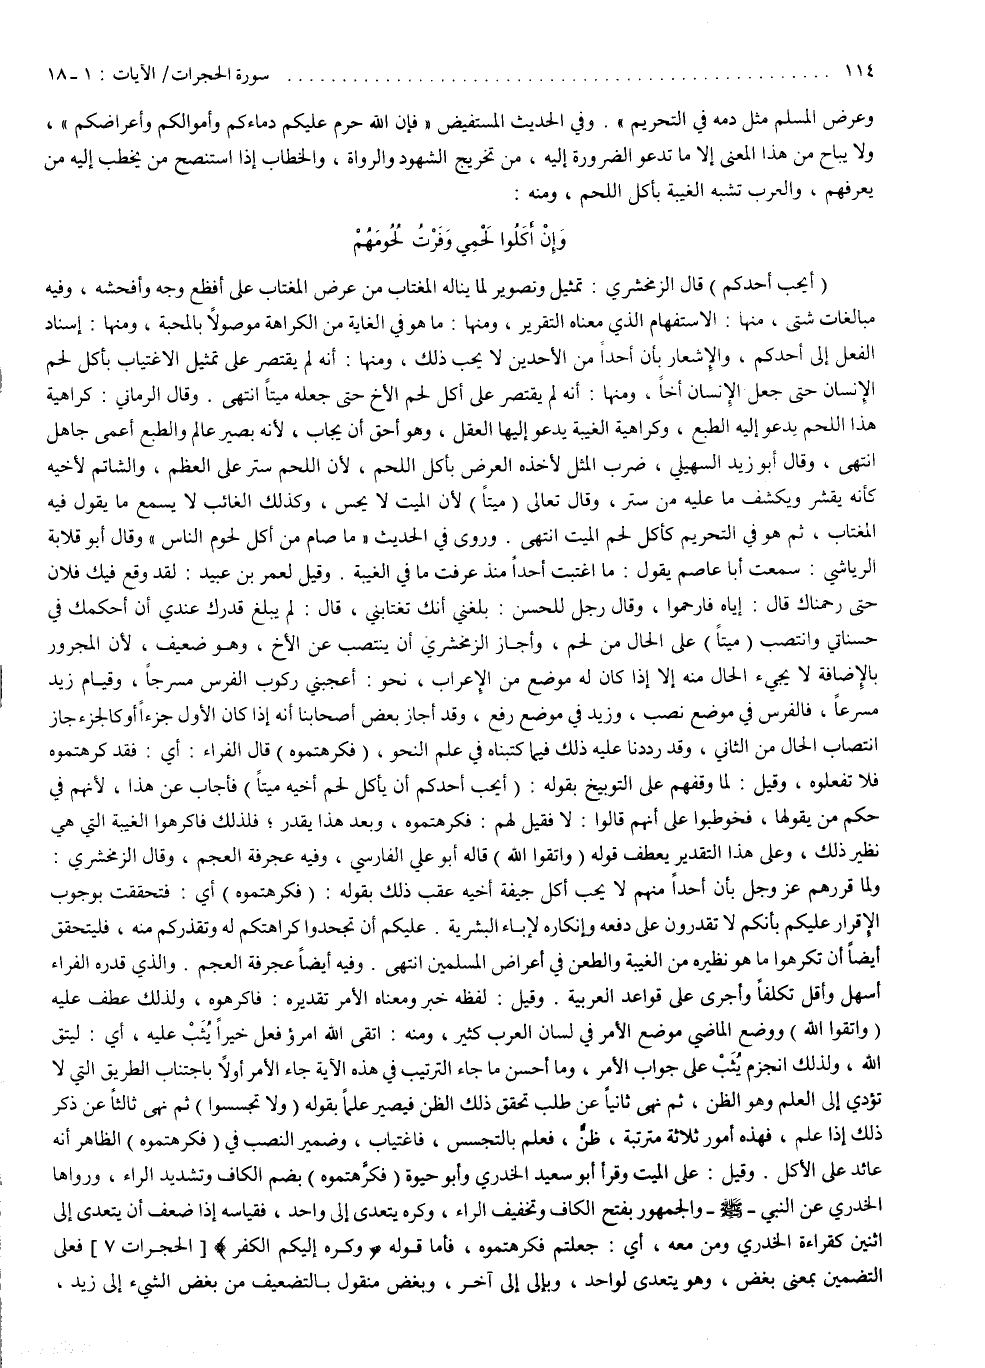 ١١٤ ........................................................ سورة الحجرات/ الآيات : ١ -١٨
وعرض المسلم مثل دمه في التحريم » . وفي الحديث المستفيض « فإن الله حرم عليكم دماءكم وأموالكم وأعراضكم » ،
ولا يباح من هذا المعنى إلا ما تدعو الضرورة إليه ، من تخريج الشهود والرواة ، والخطاب إذا استنصح من يخطب إليه من
يعرفهم ، والعرب تشبه الغيبة بأكل اللحم ، ومنه :
وَإِنْ أَكَلُوا لَحْمِي وَفَرْتُ لُحُومَهُمْ
( أيحب أحدكم ) قال الزمخشري : تمثيل وتصوير لما يناله المغتاب من عرض المغتاب على أفظع وجه وأفحشه ، وفيه
مبالغات شتى ، منها : الاستفهام الذي معناه التقرير ، ومنها : ما هو في الغاية من الكراهة موصولاً بالمحبة ، ومنها : إسناد
الفعل إلى أحدكم ، والإشعار بأن أحداً من الأحدين لا يحب ذلك ، ومنها : أنه لم يقتصر على تمثيل الاغتياب بأكل لحم
الإنسان حتى جعل الإنسان أخاً ، ومنها : أنه لم يقتصر على أكل لحم الأخ حتى جعله ميتاً انتهى . وقال الرماني : كراهية
هذا اللحم يدعو إليه الطبع ، وكراهية الغيبة يدعو إليها العقل ، وهو أحق أن يجاب ، لأنه بصير عالم والطبع أعمى جاهل
انتهى ، وقال أبو زيد السهيلي ، ضرب المثل لأخذه العرض بأكل اللحم ، لأن اللحم ستر على العظم ، والشاتم لأخيه
كأنه يقشر ويكشف ما عليه من ستر ، وقال تعالى ( ميتاً ) لأن الميت لا يحس ، وكذلك الغائب لا يسمع ما يقول فيه
المغتاب ، ثم هو في التحريم كأكل لحم الميت انتهى . وروى في الحديث « ما صام من أكل لحوم الناس » وقال أبو قلابة
الرياشي : سمعت أبا عاصم يقول : ما اغتبت أحداً منذ عرفت ما في الغيبة . وقيل لعمر بن عبيد : لقد وقع فيك فلان
حتى رحمناك قال : إياه فارحموا ، وقال رجل للحسن : بلغني أنك تغتابني ، قال : لم يبلغ قدرك عندي أن أحكمك في
حسناتي وانتصب ( ميتاً ) على الحال من لحم ، وأجاز الزمخشري أن ينتصب عن الأخ ، وهو ضعيف ، لأن المجرور
بالإضافة لا يجيء الحال منه إلا إذا كان له موضع من الإعراب ، نحو : أعجبني ركوب الفرس مسرجاً ، وقيام زيد
مسرعاً ، فالفرس في موضع نصب ، وزيد في موضع رفع ، وقد أجاز بعض أصحابنا أنه إذا كان الأول جزءاً أو كالجزء جاز
انتصاب الحال من الثاني ، وقد رددنا عليه ذلك فيما كتبناه في علم النحو ، ( فكرهتموه ) قال الفراء : أي : فقد كرهتموه
فلا تفعلوه ، وقيل : لما وقفهم على التوبيخ بقوله : ( أيحب أحدكم أن يأكل لحم أخيه ميتاً ) فأجاب عن هذا ، لأنهم في
حكم من يقولها ، فخوطبوا على أنهم قالوا : لا فقيل لهم : فكرهتموه ، وبعد هذا يقدر ؛ فلذلك فاكرهوا الغيبة التي هي
نظير ذلك ، وعلى هذا التقدير يعطف قوله ( واتقوا الله ) قاله أبو علي الفارسي ، وفيه عجرفة العجم ، وقال الزمخشري :
ولما قررهم عز وجل بأن أحداً منهم لا يحب أكل جيفة أخيه عقب ذلك بقوله : ( فكرهتموه ) أي : فتحققت بوجوب
الإقرار عليكم بأنكم لا تقدرون على دفعه وإنكاره لإباء البشرية . عليكم أن تجحدوا كراهتكم له وتقذركم منه ، فليتحقق
أيضاً أن تكرهوا ما هو نظيره من الغيبة والطعن في أعراض المسلمين انتهى . وفيه أيضاً عجرفة العجم . والذي قدره الفراء
أسهل وأقل تكلفاً وأجرى على قواعد العربية . وقيل : لفظه خبر ومعناه الأمر تقديره : فاكرهوه ، ولذلك عطف عليه
( واتقوا الله ) ووضع الماضي موضع الأمر في لسان العرب كثير ، ومنه : اتقى الله امرؤ فعل خيراً يُثَبْ عليه ، أي : ليتق
الله ، ولذلك انجزم يُثَبْ على جواب الأمر ، وما أحسن ما جاء الترتيب في هذه الآية جاء الأمر أولاً باجتناب الطريق التي لا
تؤدي إلى العلم وهو الظن ، ثم نهى ثانياً عن طلب تحقق ذلك الظن فيصير علماً بقوله ( ولا تجسسوا ) ثم نهى ثالثاً عن ذكر
ذلك إذا علم ، فهذه أمور ثلاثة مترتبة ، ظنٌّ ، فعلم بالتجسس ، فاغتياب ، وضمير النصب في ( فكرهتموه ) الظاهر أنه
عائد على الأكل . وقيل : على الميت وقرأ أبو سعيد الخدري وأبو حيوة ( فكرّهتموه ) بضم الكاف وتشديد الراء ، ورواها
الخدري عن النبي - ﷺ - والجمهور بفتح الكاف وتخفيف الراء ، وكره يتعدى إلى واحد ، فقياسه إذا ضعف أن يتعدى إلى
اثنين كقراءة الخدري ومن معه ، أي : جعلتم فكرهتموه ، فأما قوله ﴿ وكره إليكم الكفر ﴾ [ الحجرات ٧ ] فعلى
التضمين بمعنى بغض ، وهو يتعدى لواحد ، وبإلى إلى آخر ، وبغض منقول بالتضعيف من بغض الشيء إلى زيد ،